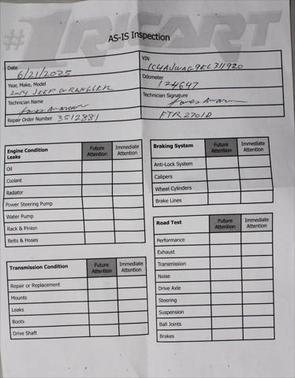 #TRICART
AS-IS Inspection
Date
6/21/2025
VIN
Year, Make, Model
2014 JEEP WRANGLER
Odometer
124647
Technician Name
Technician Signature
Repair Order Number 3512881
FTR2701D
Engine Condition
Leaks
Future Attention
Immediate Attention
Oil
Coolant
Radiator
Power Steering Pump
Water Pump
Rack & Pinion
Belts & Hoses
Transmission Condition
Future Attention
Immediate Attention
Repair or Replacement
Mounts
Leaks
Boots
Drive Shaft
Braking System
Future Attention
Immediate Attention
Anti-Lock System
Calipers
Wheel Cylinders
Brake Lines
Road Test
Future Attention
Immediate Attention
Performance
Exhaust
Transmission
Noise
Drive Axle
Steering
Suspension
Ball Joints
Brakes